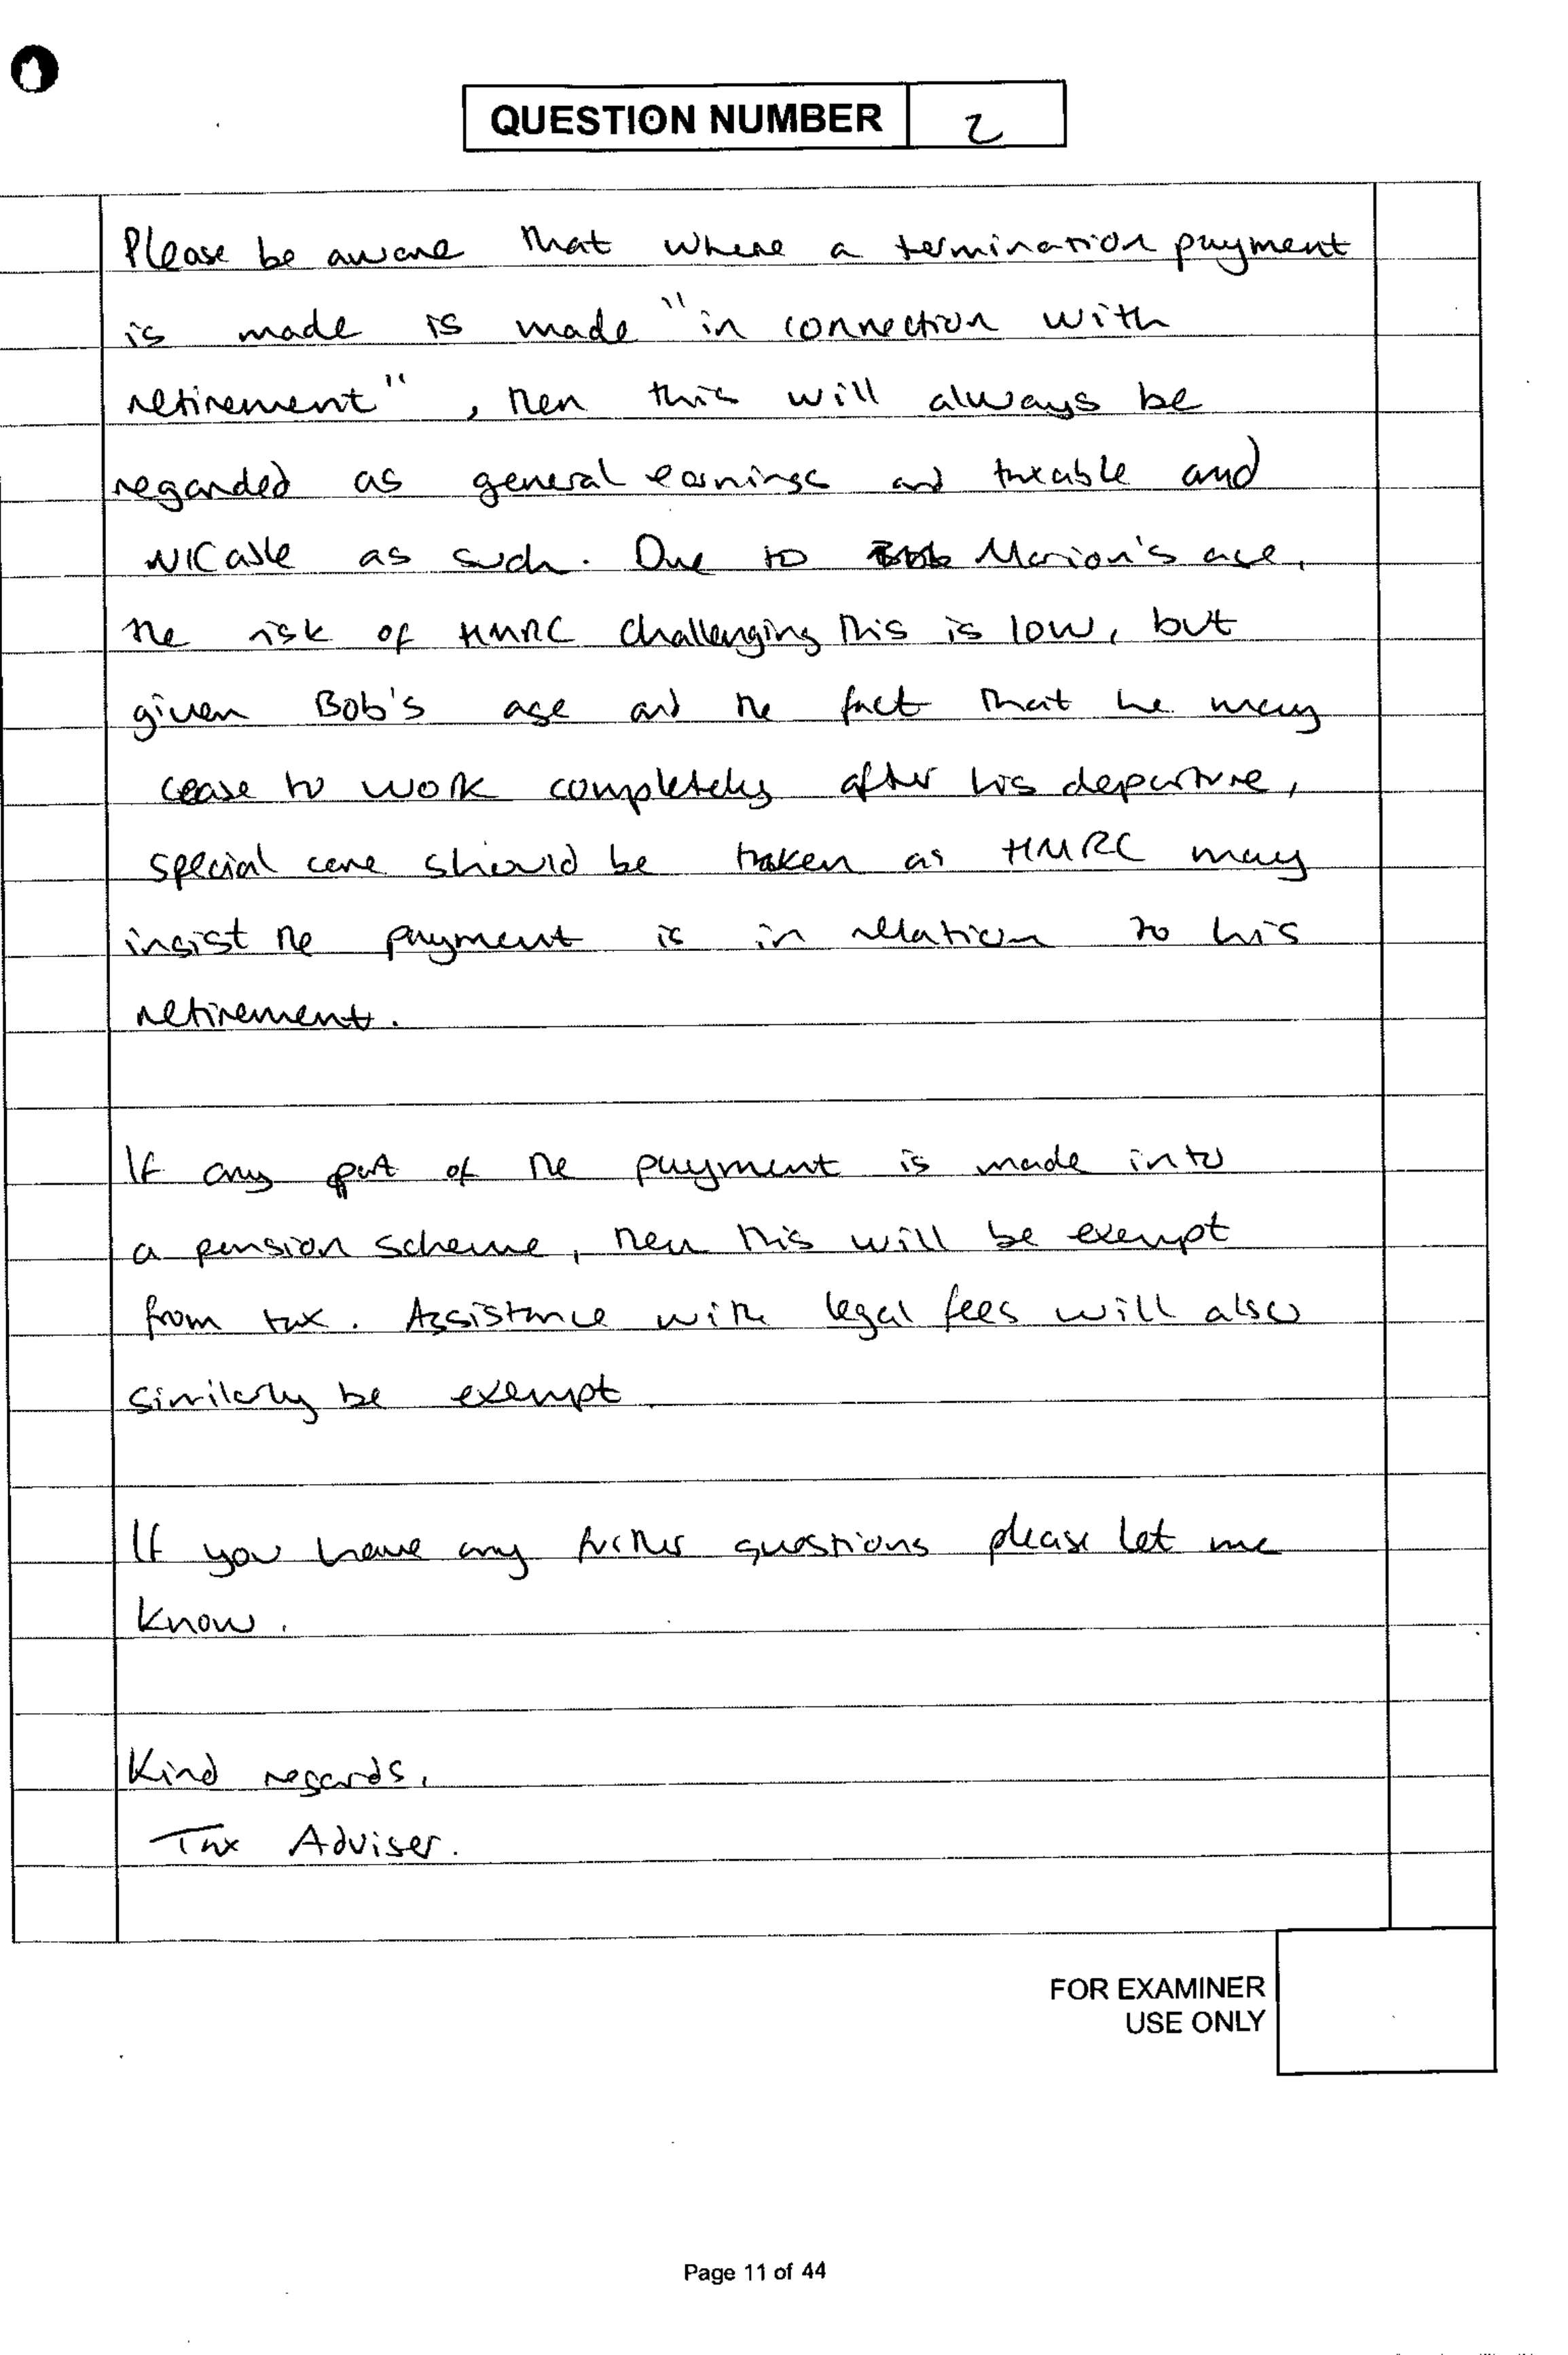 QUESTION NUMBER 2
Please be aware that where a termination payment
is made is made "in connection with
retirement", then this will always be
regarded as general earnings and taxable and
NICable as such. Due to Bob Marion's age,
the risk of HMRC challenging this is low, but
given Bob's age and the fact that he may
cease to work completely after his departure,
special care should be taken as HMRC may
insist the payment is in relation to his
retirement.
If any part of the payment is made into
a pension scheme, then this will be exempt
from tax. Assistance with legal fees will also
similarly be exempt.
If you have any further questions please let me
know.
Kind regards,
Tax Adviser.
FOR EXAMINER
USE ONLY
Page 11 of 44